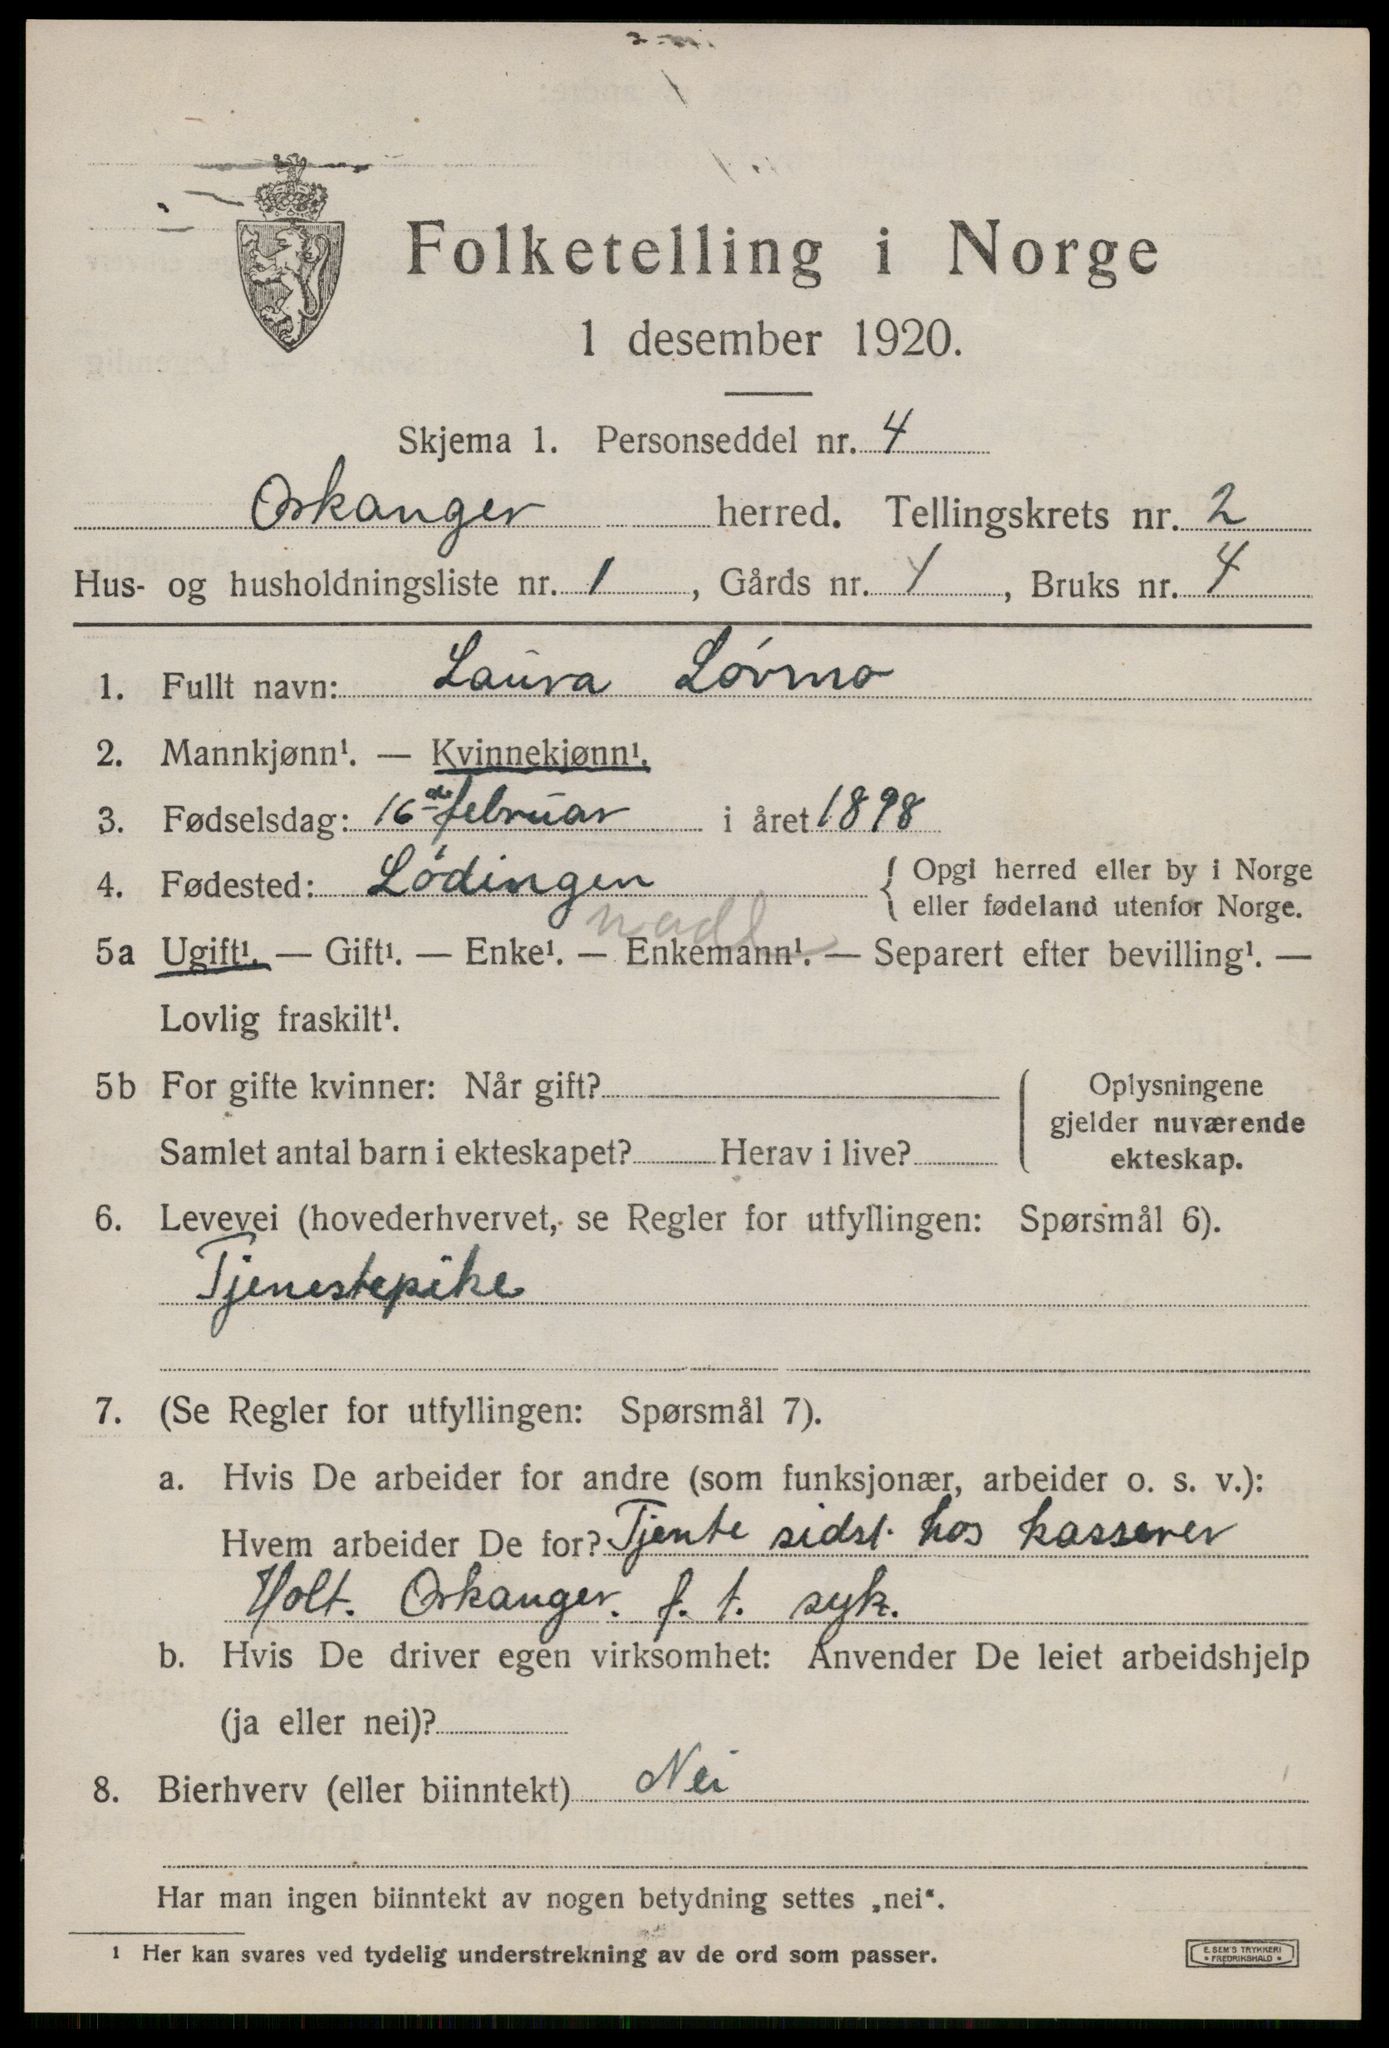 Folketelling i Norge
1 desember 1920.
Skjema 1. Personseddel nr. 4
Orkanger herred. Tellingskrets nr. 2
Hus- og husholdningsliste nr. 1, Gårds nr. 1, Bruks nr. 4
1. Fullt navn: Laura Lövmo
2. Mannkjønn¹. — Kvinnekjønn¹.
3. Fødselsdag: 16de februar i året 1898
4. Fødested: Lödingen { Opgi herred eller by i Norge
eller fødeland utenfor Norge.
nordl
5a Ugift¹. — Gift¹. — Enke¹. — Enkemann¹. — Separert efter bevilling¹. —
Lovlig fraskilt¹.
5b For gifte kvinner: Når gift?
Samlet antal barn i ekteskapet? Herav i live?
Oplysningene
gjelder nuværende
ekteskap.
6. Levevei (hovederhvervet, se Regler for utfyllingen: Spørsmål 6).
Tjenestepike
7. (Se Regler for utfyllingen: Spørsmål 7).
a. Hvis De arbeider for andre (som funksjonær, arbeider o. s. v.):
Hvem arbeider De for? Tjente sidst hos kasserer
Holt. Orkanger. f. t. syk.
b. Hvis De driver egen virksomhet: Anvender De leiet arbeidshjelp
(ja eller nei)?
8. Bierhverv (eller biinntekt) Nei
Har man ingen biinntekt av nogen betydning settes „nei“.
¹ Her kan svares ved tydelig understrekning av de ord som passer.
E. SEM'S TRYKKERI
* FREDRIKSHALD *